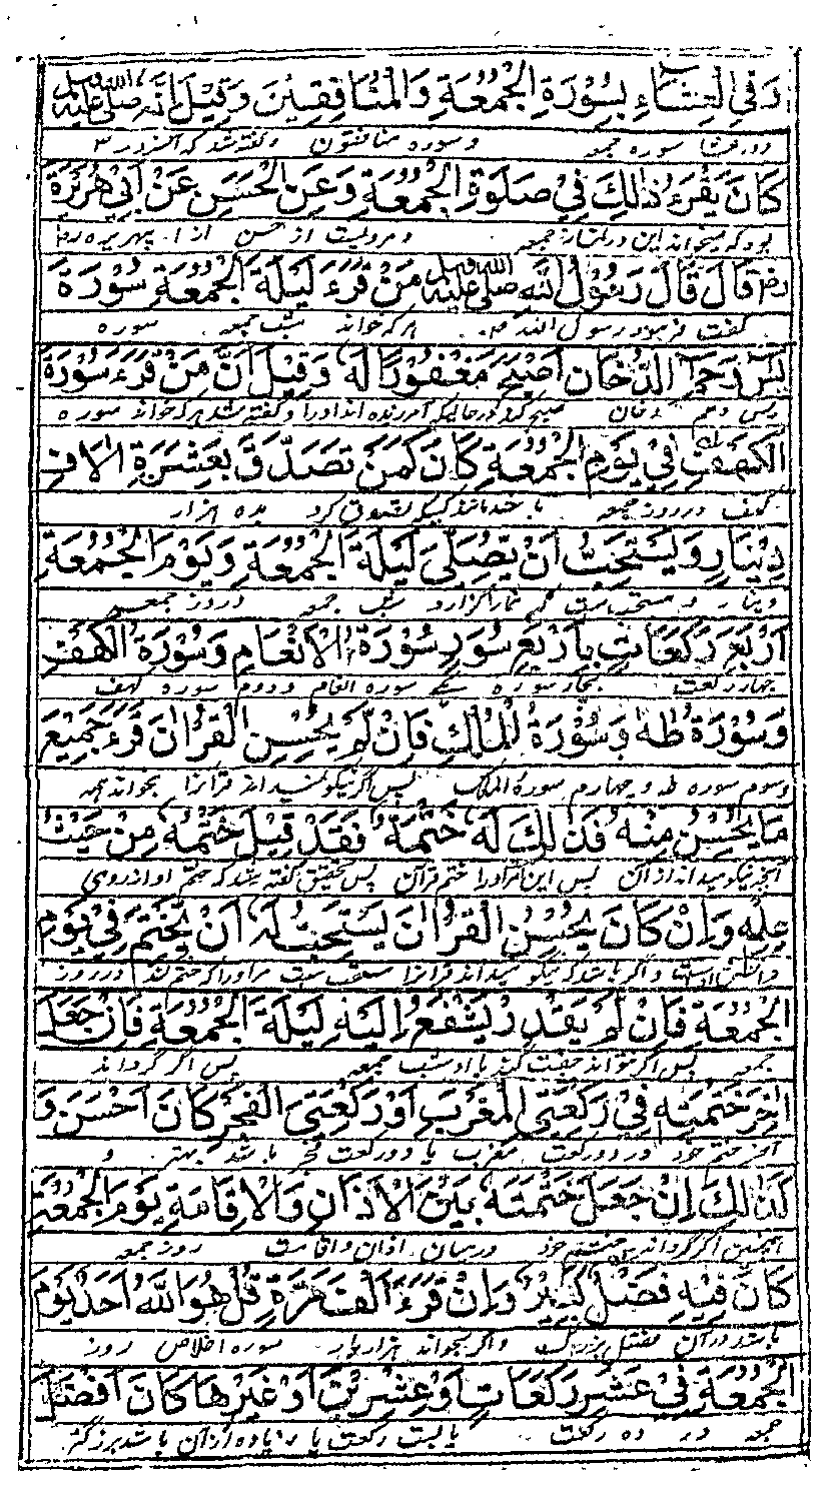 وَفِي الْعِشَاءِ بِسُوْرَةِ الْجُمُعَةِ وَالْمُنَافِقِيْنَ وَقِيْلَ اِنَّهٗ صلى الله عليه وسلم
ودر عشا سوره جمعه و سوره منافقون و گفته شد كه آنحضرت
كَانَ يَقْرَءُ ذٰلِكَ فِيْ صَلٰوةِ الْجُمُعَةِ وَعَنِ الْحَسَنِ عَنْ اَبِيْ هُرَيْرَةَ
بود كه ميخواند اين در نماز جمعه و مرويست از حسن از ابي هريره رض
رض قَالَ قَالَ رَسُوْلُ اللّٰهِ صلى الله عليه وسلم مَنْ قَرَءَ لَيْلَةَ الْجُمُعَةِ سُوْرَةَ
گفت فرمود رسول الله هر كه خواند شب جمعه سوره
يٰسٓ وَحٰمٓ الدُّخَانِ اَصْبَحَ مَغْفُوْرًا لَهٗ وَقِيْلَ اَنَّ مَنْ قَرَءَ سُوْرَةَ
يس و حم دخان صبح كرد در حاليكه آمرزنده اند اورا و گفته شد هر كه خواند سوره
الْكَهْفِ فِيْ يَوْمِ الْجُمُعَةِ كَانَ كَمَنْ تَصَدَّقَ بِعَشَرَةِ اٰلَافِ
كهف در روز جمعه باشد مانند كسيكه تصدق كرد بده هزار
دِيْنَارٍ وَيَسْتَحِبُّ اَنْ يُصَلِّيَ لَيْلَةَ الْجُمُعَةِ وَيَوْمَ الْجُمُعَةِ
دينار و مستحب است كه نماز گزارد شب جمعه و روز جمعه
اَرْبَعَ رَكَعَاتٍ بِاَرْبَعِ سُوَرٍ سُوْرَةِ الْاَنْعَامِ وَسُوْرَةِ الْكَهْفِ
چهار ركعت بچهار سوره يكے سوره انعام و دوم سوره كهف
وَسُوْرَةِ طٰهٰ وَسُوْرَةِ الْمُلْكِ فَاِنْ لَمْ يُحْسِنِ الْقُرْاٰنَ قَرَءَ جَمِيْعَ
وسوم سوره طه و چهارم سورة الملك پس اگر نيكو نميداند قرآنرا بخواند همه
مَا يُحْسِنُ مِنْهُ فَذٰلِكَ لَهٗ خَتْمَةٌ فَقَدْ قِيْلَ خَتْمُهٗ مِنْ حَيْثُ
آنچه نيكو ميداند از آن پس اين مراورا ختم قرآن پس تحقيق گفته شد كه ختم او از روى
عِلْمِهٖ وَاِنْ كَانَ يُحْسِنُ الْقُرْاٰنَ يَسْتَحِبُّ لَهٗ اَنْ يَخْتِمَ فِيْ يَوْمِ
دانستن اوست و اگر باشد كه نيكو ميداند قرآنرا مستحب است مراورا كه ختم كند در روز
الْجُمُعَةِ فَاِنْ لَمْ يَقْدِرْ يَشْفَعُ اِلَيْهِ لَيْلَةَ الْجُمُعَةِ فَاِنْ جَعَلَ
جمعه پس اگر نتواند جفت كند با او شب جمعه پس اگر گرداند
اٰخِرَ خَتْمَتِهٖ فِيْ رَكْعَتَيِ الْمَغْرِبِ اَوْ رَكْعَتَيِ الْفَجْرِ كَانَ اَحْسَنَ وَ
آخر ختم خود در دو ركعت مغرب يا دو ركعت فجر باشد بهتر و
كَذٰلِكَ اِنْ جَعَلَ خَتْمَتَهٗ بَيْنَ الْاَذَانِ وَالْاِقَامَةِ يَوْمَ الْجُمُعَةِ
همچنين اگر گرداند ختم خود درميان اذان و اقامت روز جمعه
كَانَ فِيْهِ فَضْلٌ كَبِيْرٌ وَاِنْ قَرَءَ اَلْفَ مَرَّةٍ قُلْ هُوَ اللّٰهُ اَحَدٌ يَوْمَ
باشد در آن فضل بزرگ و اگر بخواند هزار بار سوره اخلاص روز
الْجُمُعَةِ فِيْ عَشْرِ رَكَعَاتٍ اَوْ عِشْرِيْنَ اَوْ غَيْرِهَا كَانَ اَفْضَلَ
جمعه در ده ركعت يا بيست ركعت يا زياده از آن باشد بزرگتر